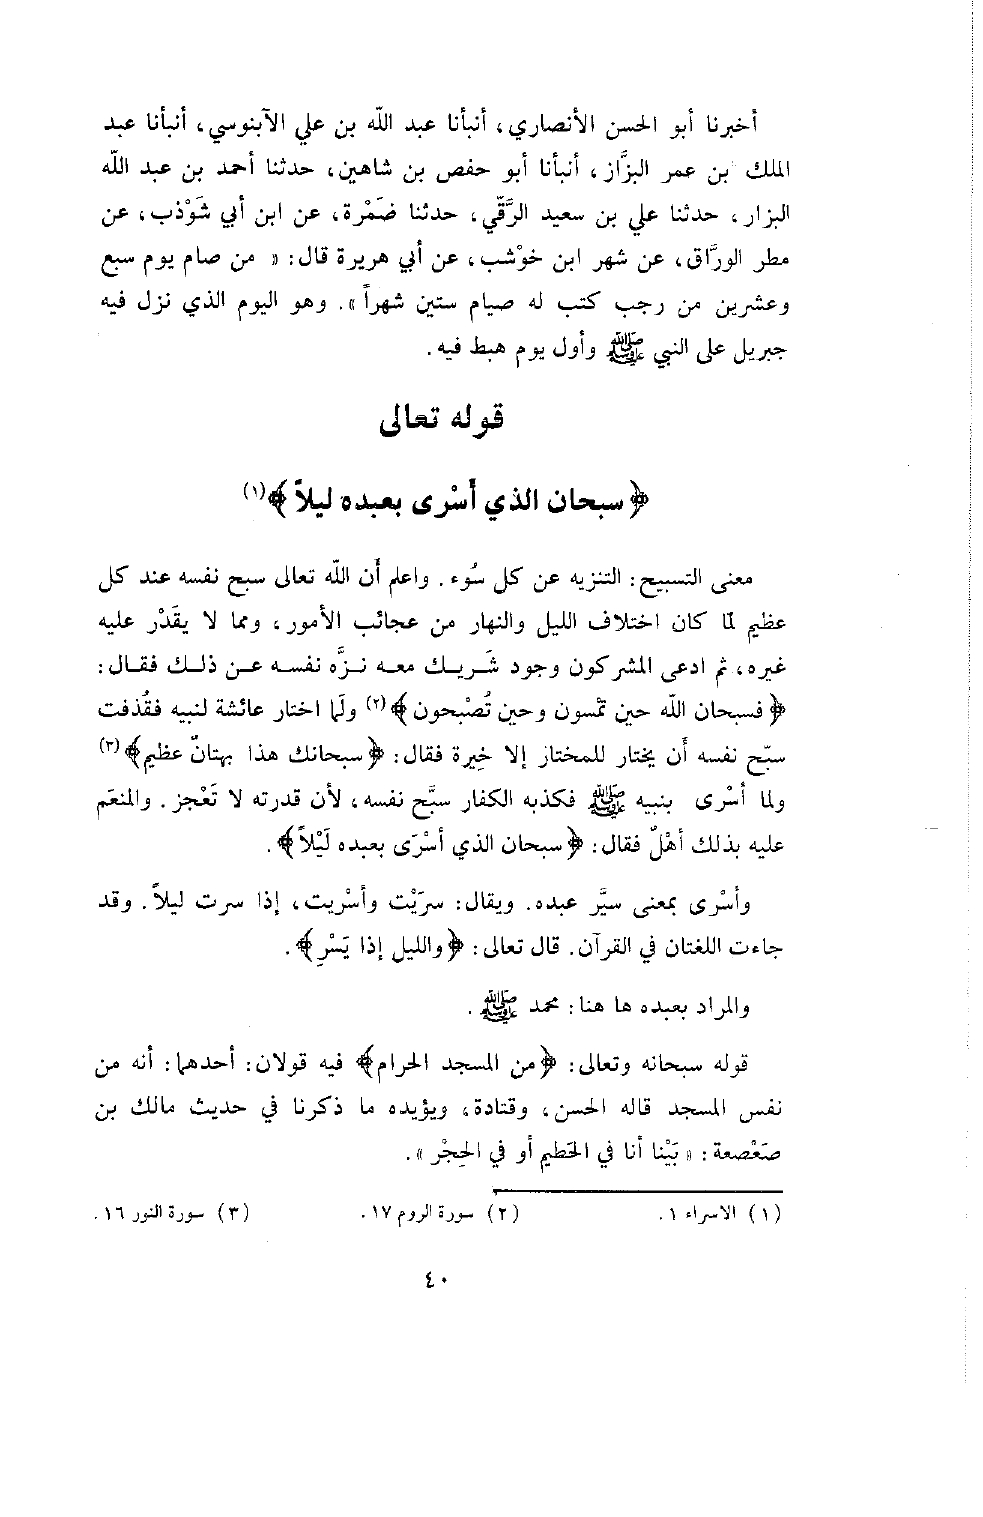 أخبرنا أبو الحسن الأنصاري، أنبأنا عبد الله بن علي الآبنوسي، أنبأنا عبد
الملك بن عمر البزَّاز، أنبأنا أبو حفص بن شاهين، حدثنا أحمد بن عبد الله
البزار، حدثنا علي بن سعيد الرَّقّي، حدثنا ضَمْرة، عن ابن أبي شَوْذب، عن
مطر الورَّاق، عن شهر ابن خوْشب، عن أبي هريرة قال: « من صام يوم سبع
وعشرين من رجب كتب له صيام ستين شهراً ». وهو اليوم الذي نزل فيه
جبريل على النبي ﷺ وأول يوم هبط فيه.
قوله تعالى
﴿ سبحان الذي أسْرى بعبده ليلاً ﴾(١)
معنى التسبيح: التنزيه عن كل سُوء. واعلم أن الله تعالى سبح نفسه عند كل
عظيم لما كان اختلاف الليل والنهار من عجائب الأمور، ومما لا يقَدْر عليه
غيره، ثم ادعى المشركون وجود شَريك معه نزَّه نفسه عن ذلك فقال:
﴿ فسبحان الله حين تمْسون وحين تُصْبحون ﴾(٢) ولمَّا اختار عائشة لنبيه فقُذفت
سبّح نفسه أن يختار للمختار إلا خِيرة فقال: ﴿ سبحانك هذا بهتانٌ عظيم ﴾(٣)
ولما أسْرى بنبيه ﷺ فكذبه الكفار سبَّح نفسه، لأن قدرته لا تَعْجز. والمنعَم
عليه بذلك أهْلٌ فقال: ﴿ سبحان الذي أسْرَى بعبده لَيْلاً ﴾.
وأسْرى بمعنى سيَّر عبده. ويقال: سريْت وأسْريت، إذا سرت ليلاً. وقد
جاءت اللغتان في القرآن. قال تعالى: ﴿ والليل إذا يَسْرِ ﴾.
والمراد بعبده ها هنا: محمد ﷺ.
قوله سبحانه وتعالى: ﴿ من المسجد الحرام ﴾ فيه قولان: أحدهما: أنه من
نفس المسجد قاله الحسن، وقتادة، ويؤيده ما ذكرنا في حديث مالك بن
صَعْصعة: « بَيْنا أنا في الحَطيم أو في الحِجْر ».
(١) الاسراء ١. (٢) سورة الروم ١٧. (٣) سورة النور ١٦.
٤٠